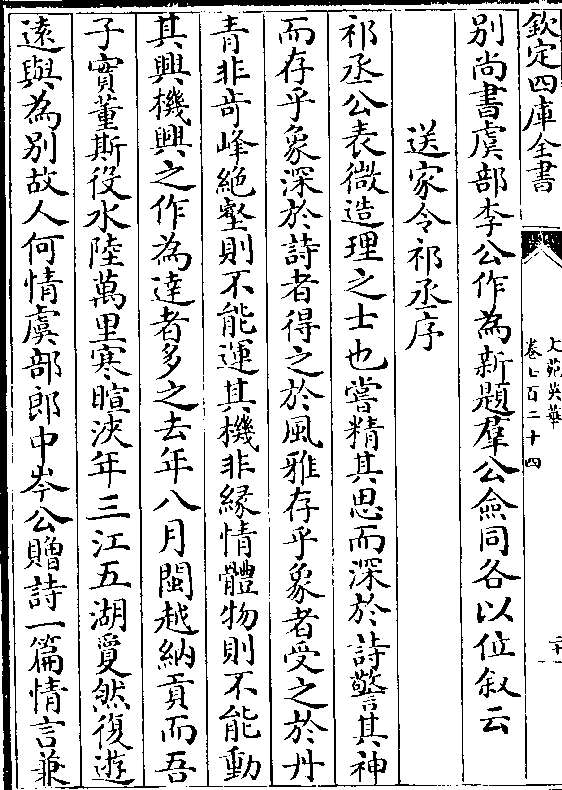 欽定四庫全書
文苑英華
卷七百二十四
二十一
別尚書虞部李公作為新題羣公僉同各以位叙云
送家令祁丞序
祁丞公表微造理之士也嘗精其思而深於詩警其神
而存乎象深於詩者得之於風雅存乎象者受之於丹
青非奇峰絶壑則不能運其機非縁情體物則不能動
其興機興之作為達者多之去年八月閩越納貢而吾
子實董斯役水陸萬里寒暄浹年三江五湖夐然復遊
逺與為别故人何情虞部郎中岑公贈詩一篇情言兼